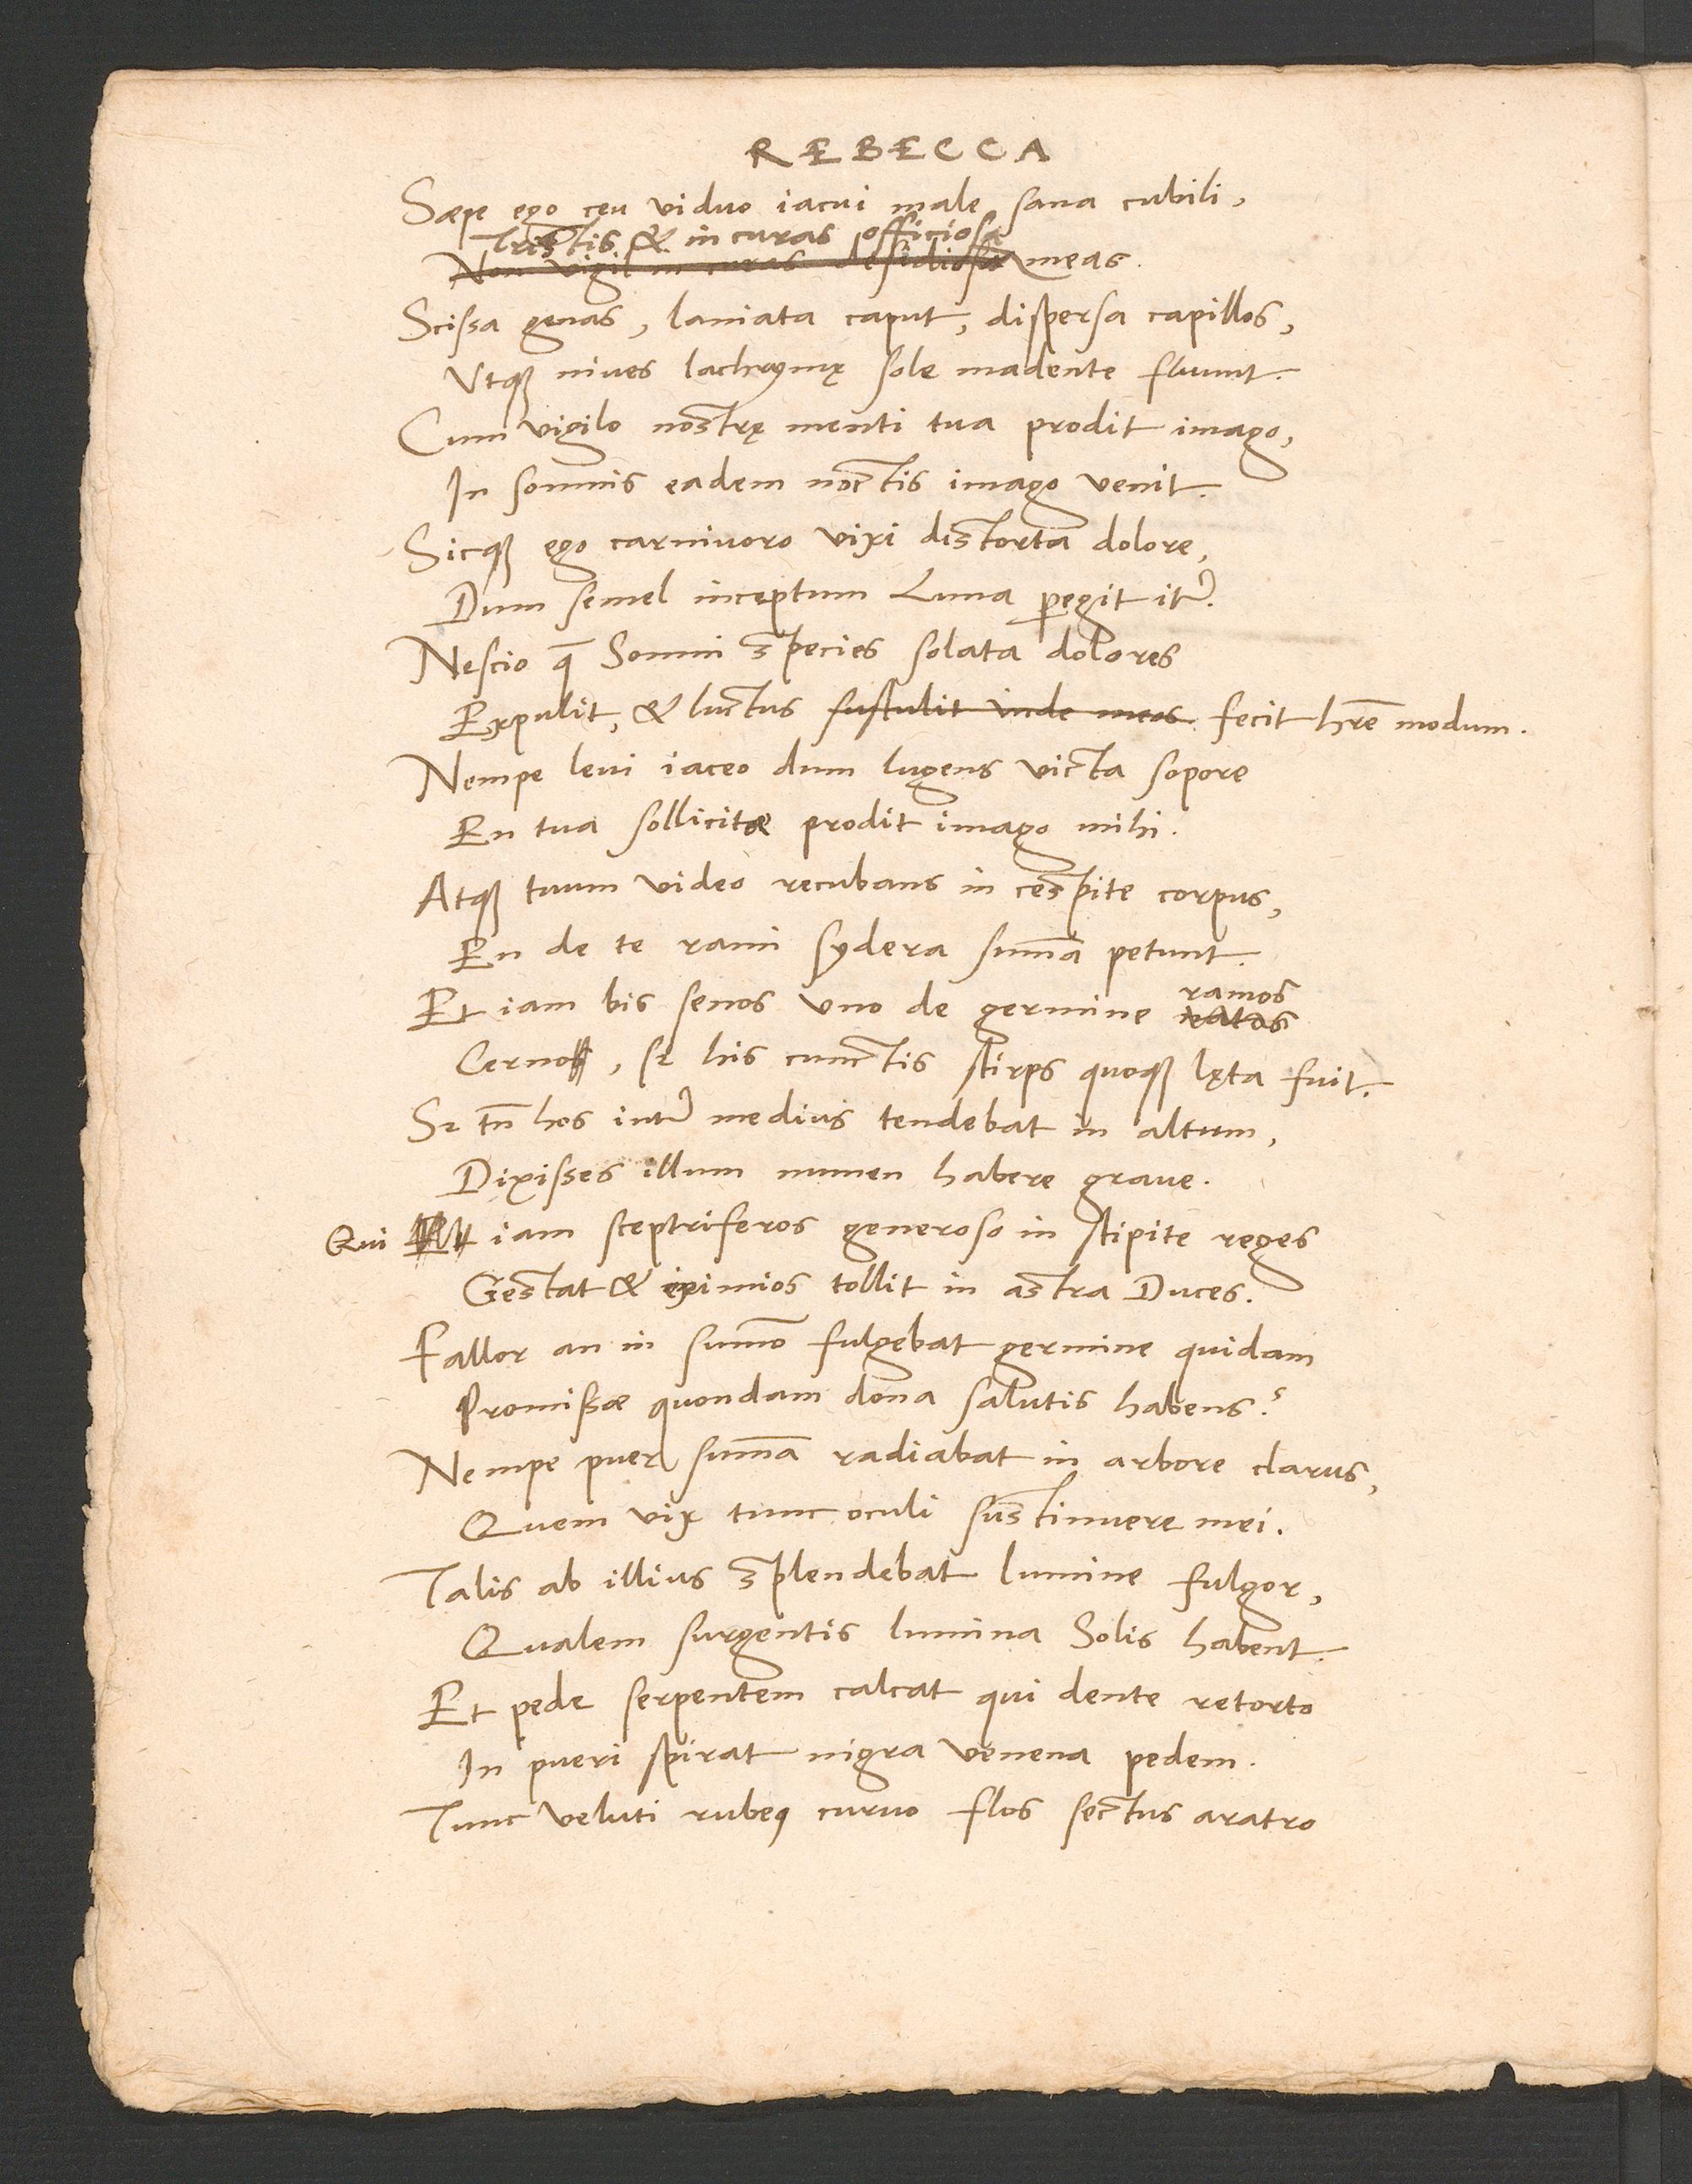 REBECCA
Sæpe ego ceu viduo iacui male sana cubili,
Tristis & in curas officiosa
Non vigil in curas desidiosa meas.
Scissa genas, laniata caput, dispersa capillos,
Vtqꝫ niues lachrymę sole madente fluunt.
Cum vigilo nostrę menti tua prodit imago,
In somnis eadem noctis imago venit.
Sicqꝫ ego carniuoro vixi distorta dolore,
Dum semel inceptum Luna ꝑegit iter̃.
Nescio q̄ Somni species solata dolores
Expulit, & luctus sustulit inde meos fecit hr̄e modum.
Nempe leui iaceo dum lugens victa sopore
En tua sollicitæ prodit imago mihi.
Atqꝫ tuum video recubans in cespite corpus,
En de te rami sydera sum̄a petunt.
Et iam bis senos vno de germine ramos
natos
Cerno, sꝫ his cunctis stirps quoqꝫ lęta fuit.
Sꝫ tn̄ hos inter̃ medius tendebat in altum,
Dixisses illum numen habere graue.
Qui iam sceptriferos generoso in stipite reges
Gestat & eximios tollit in astra Duces.
Fallor an in sum̄o fulgebat germine quidam
Promissæ quondam dona salutis habens?
Nempe puer sum̄a radiabat in arbore clarus,
Quem vix tunc oculi sustinuere mei.
Talis ab illius splendebat lumine fulgor,
Qualem surgentis lumina Solis habent.
Et pede serpentem calcat qui dente retorto
In pueri spirat nigra venena pedem.
Tunc veluti rubeꝰ curuo flos sectus aratro